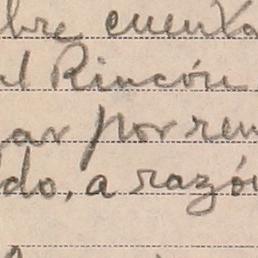 bre cuenta
al Rincón
ar por ren
do, a razón